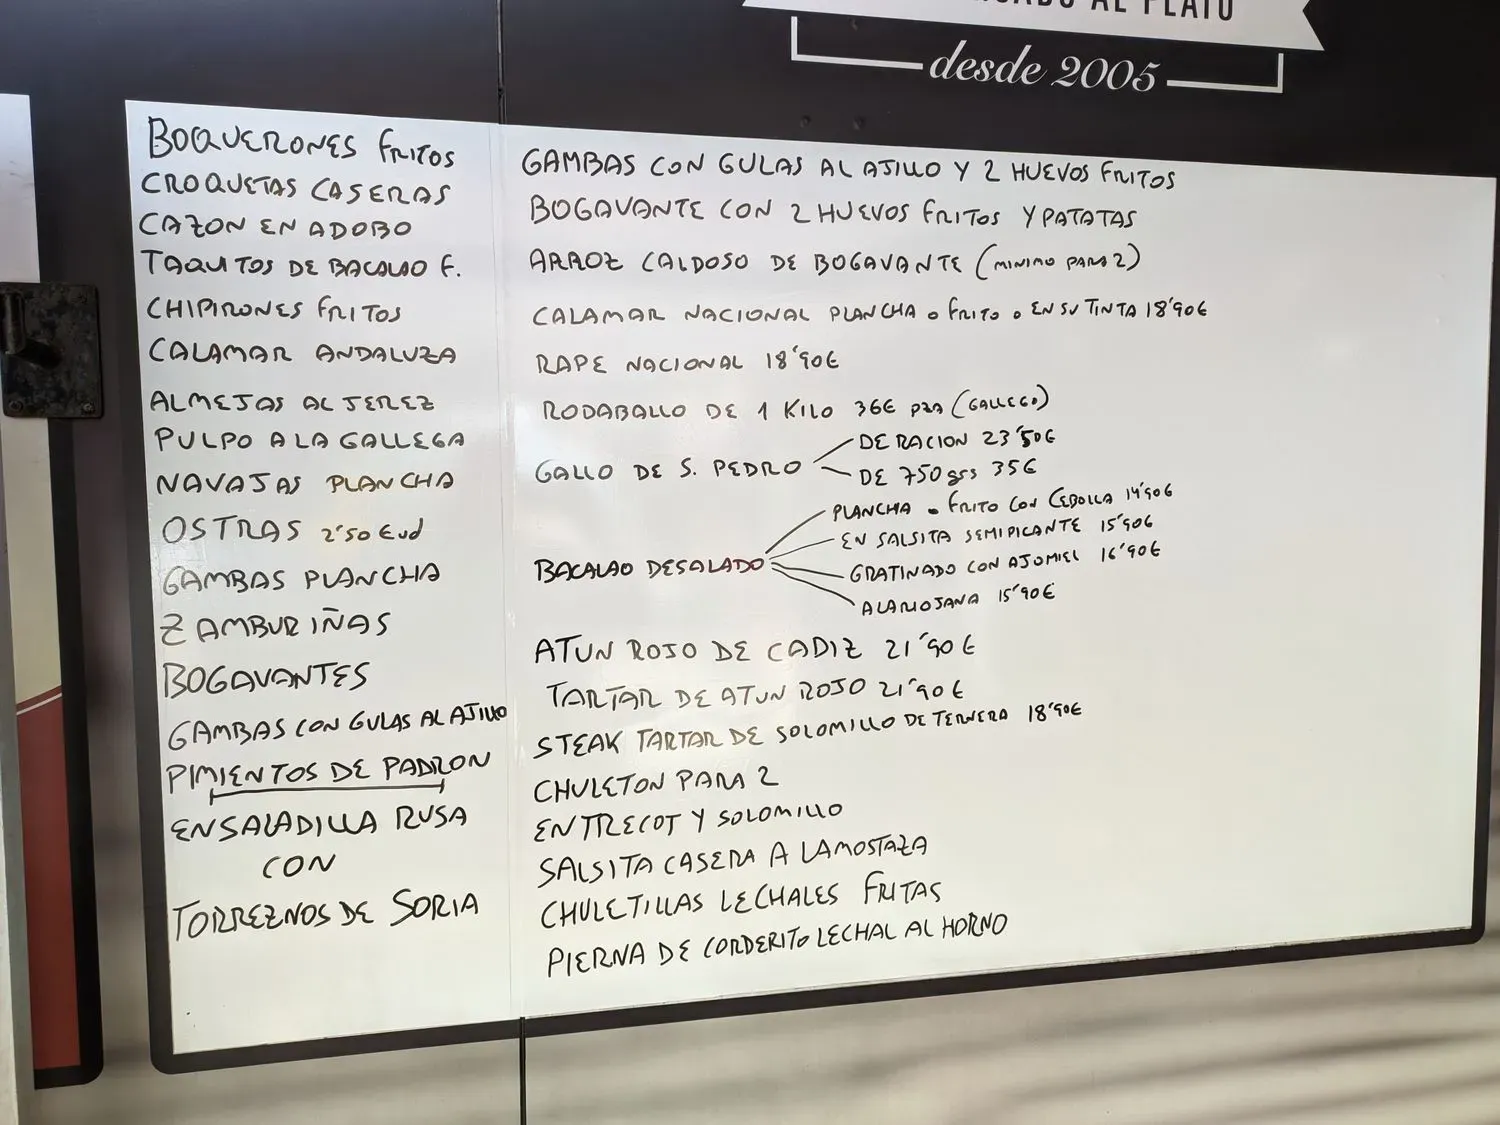 AL PLATO
desde 2005
BOQUERONES FRITOS
CROQUETAS CASERAS
CAZON EN ADOBO
TAQUITOS DE BACALAO F.
CHIPIRONES FRITOS
CALAMAR ANDALUZA
ALMEJAS AL JEREZ
PULPO A LA GALLEGA
NAVAJAS PLANCHA
OSTRAS 2'50 € ud
GAMBAS PLANCHA
ZAMBURIÑAS
BOGAVANTES
GAMBAS CON GULAS AL AJILLO
PIMIENTOS DE PADRON
ENSALADILLA RUSA
CON
TORREZNOS DE SORIA
GAMBAS CON GULAS AL AJILLO Y 2 HUEVOS FRITOS
BOGAVANTE CON 2 HUEVOS FRITOS Y PATATAS
ARROZ CALDOSO DE BOGAVANTE (MINIMO PARA 2)
CALAMAR NACIONAL PLANCHA o FRITO o EN SU TINTA 18'90€
RAPE NACIONAL 18'90€
RODABALLO DE 1 KILO 36€ PZA (GALLEGO)
GALLO DE S. PEDRO
DE RACION 23'50€
DE 750 grs 35€
BACALAO DESALADO
PLANCHA o FRITO CON CEBOLLA 14'90€
EN SALSITA SEMIPICANTE 15'90€
GRATINADO CON AJOMIEL 16'90€
A LA RIOJANA 15'90€
ATUN ROJO DE CADIZ 21'90€
TARTAR DE ATUN ROJO 21'90€
STEAK TARTAR DE SOLOMILLO DE TERNERA 18'90€
CHULETON PARA 2
ENTRECOT Y SOLOMILLO
SALSITA CASERA A LA MOSTAZA
CHULETILLAS LECHALES FRITAS
PIERNA DE CORDERITO LECHAL AL HORNO